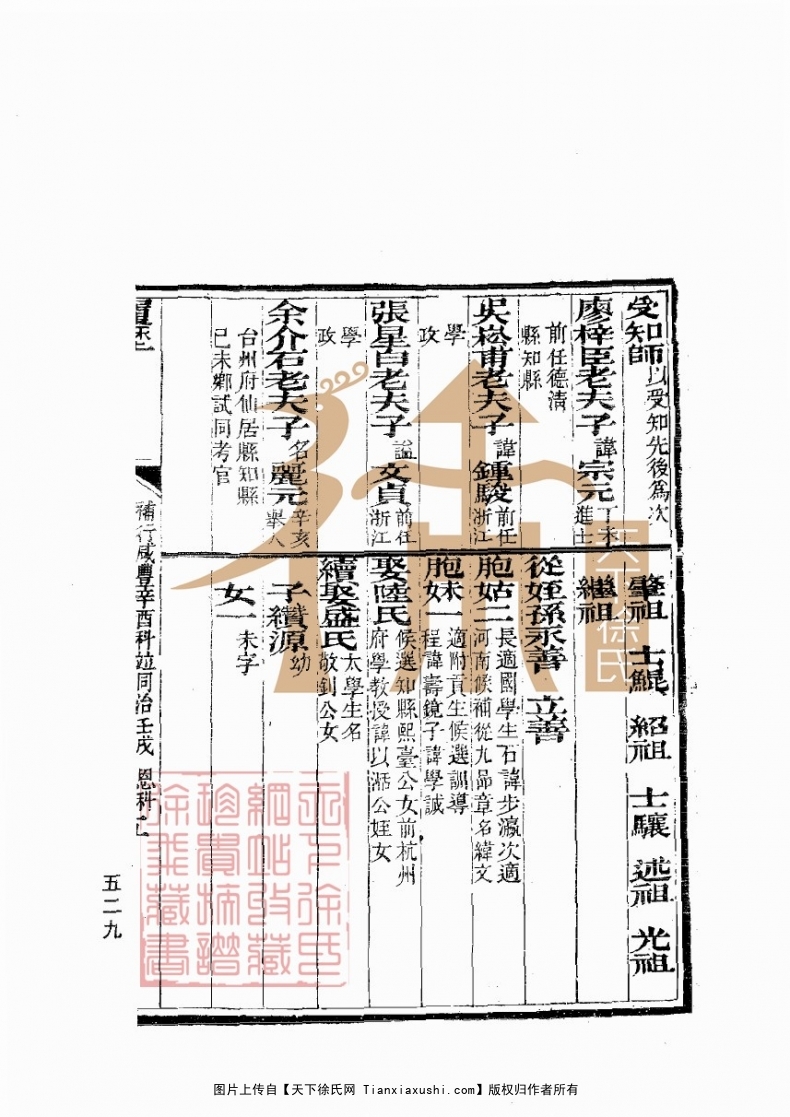 受知師以受知先後爲次
廖梓臣老夫子諱宗元丁未進士
前任德清縣知縣
吳崧甫老夫子諱鍾駿前任浙江
學政
張星白老夫子諡文貞前任浙江
學政
余介石老夫子名麗元辛亥舉人
台州府仙居縣知縣
己未鄉試同考官
肇祖 士鯤 紹祖 士驤 述祖 光祖
繼祖
從姪孫永善 立善
胞姑二長適國學生石諱步瀛次適
河南候補從九品章名緯文
胞妹一適附貢生候選訓導
程諱壽鏡子諱學誠
娶陸氏候選知縣熙臺公女前杭州
府學教授諱以湉公姪女
續娶盛氏太學生名
敬釗公女
子纘源幼
女一未字
補行咸豐辛酉科並同治壬戌 恩科
五二九
天下徐氏
图片上传自【天下徐氏网 Tianxiaxushi.com】版权归作者所有